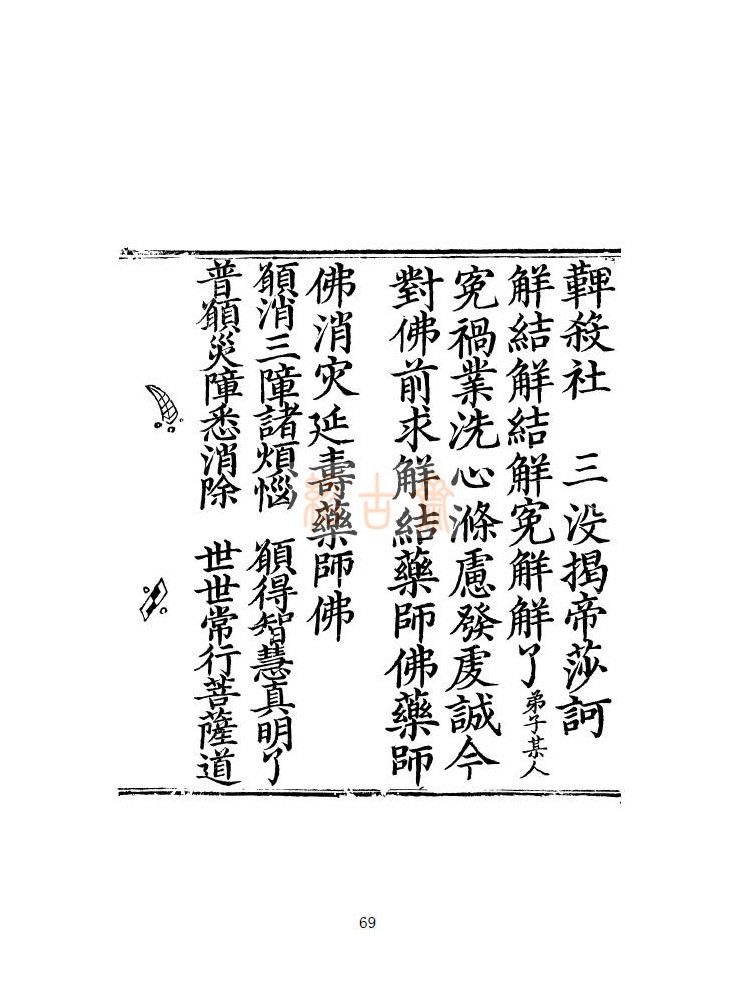 鞞殺社　三没揭帝莎訶
解結解結解冤解解了弟子某人
冤禍業洗心滌慮發虔誠今
對佛前求解結藥師佛藥師
佛消灾延壽藥師佛
願消三障諸煩惱　願得智慧真明了
普願災障悉消除　世世常行菩薩道
69